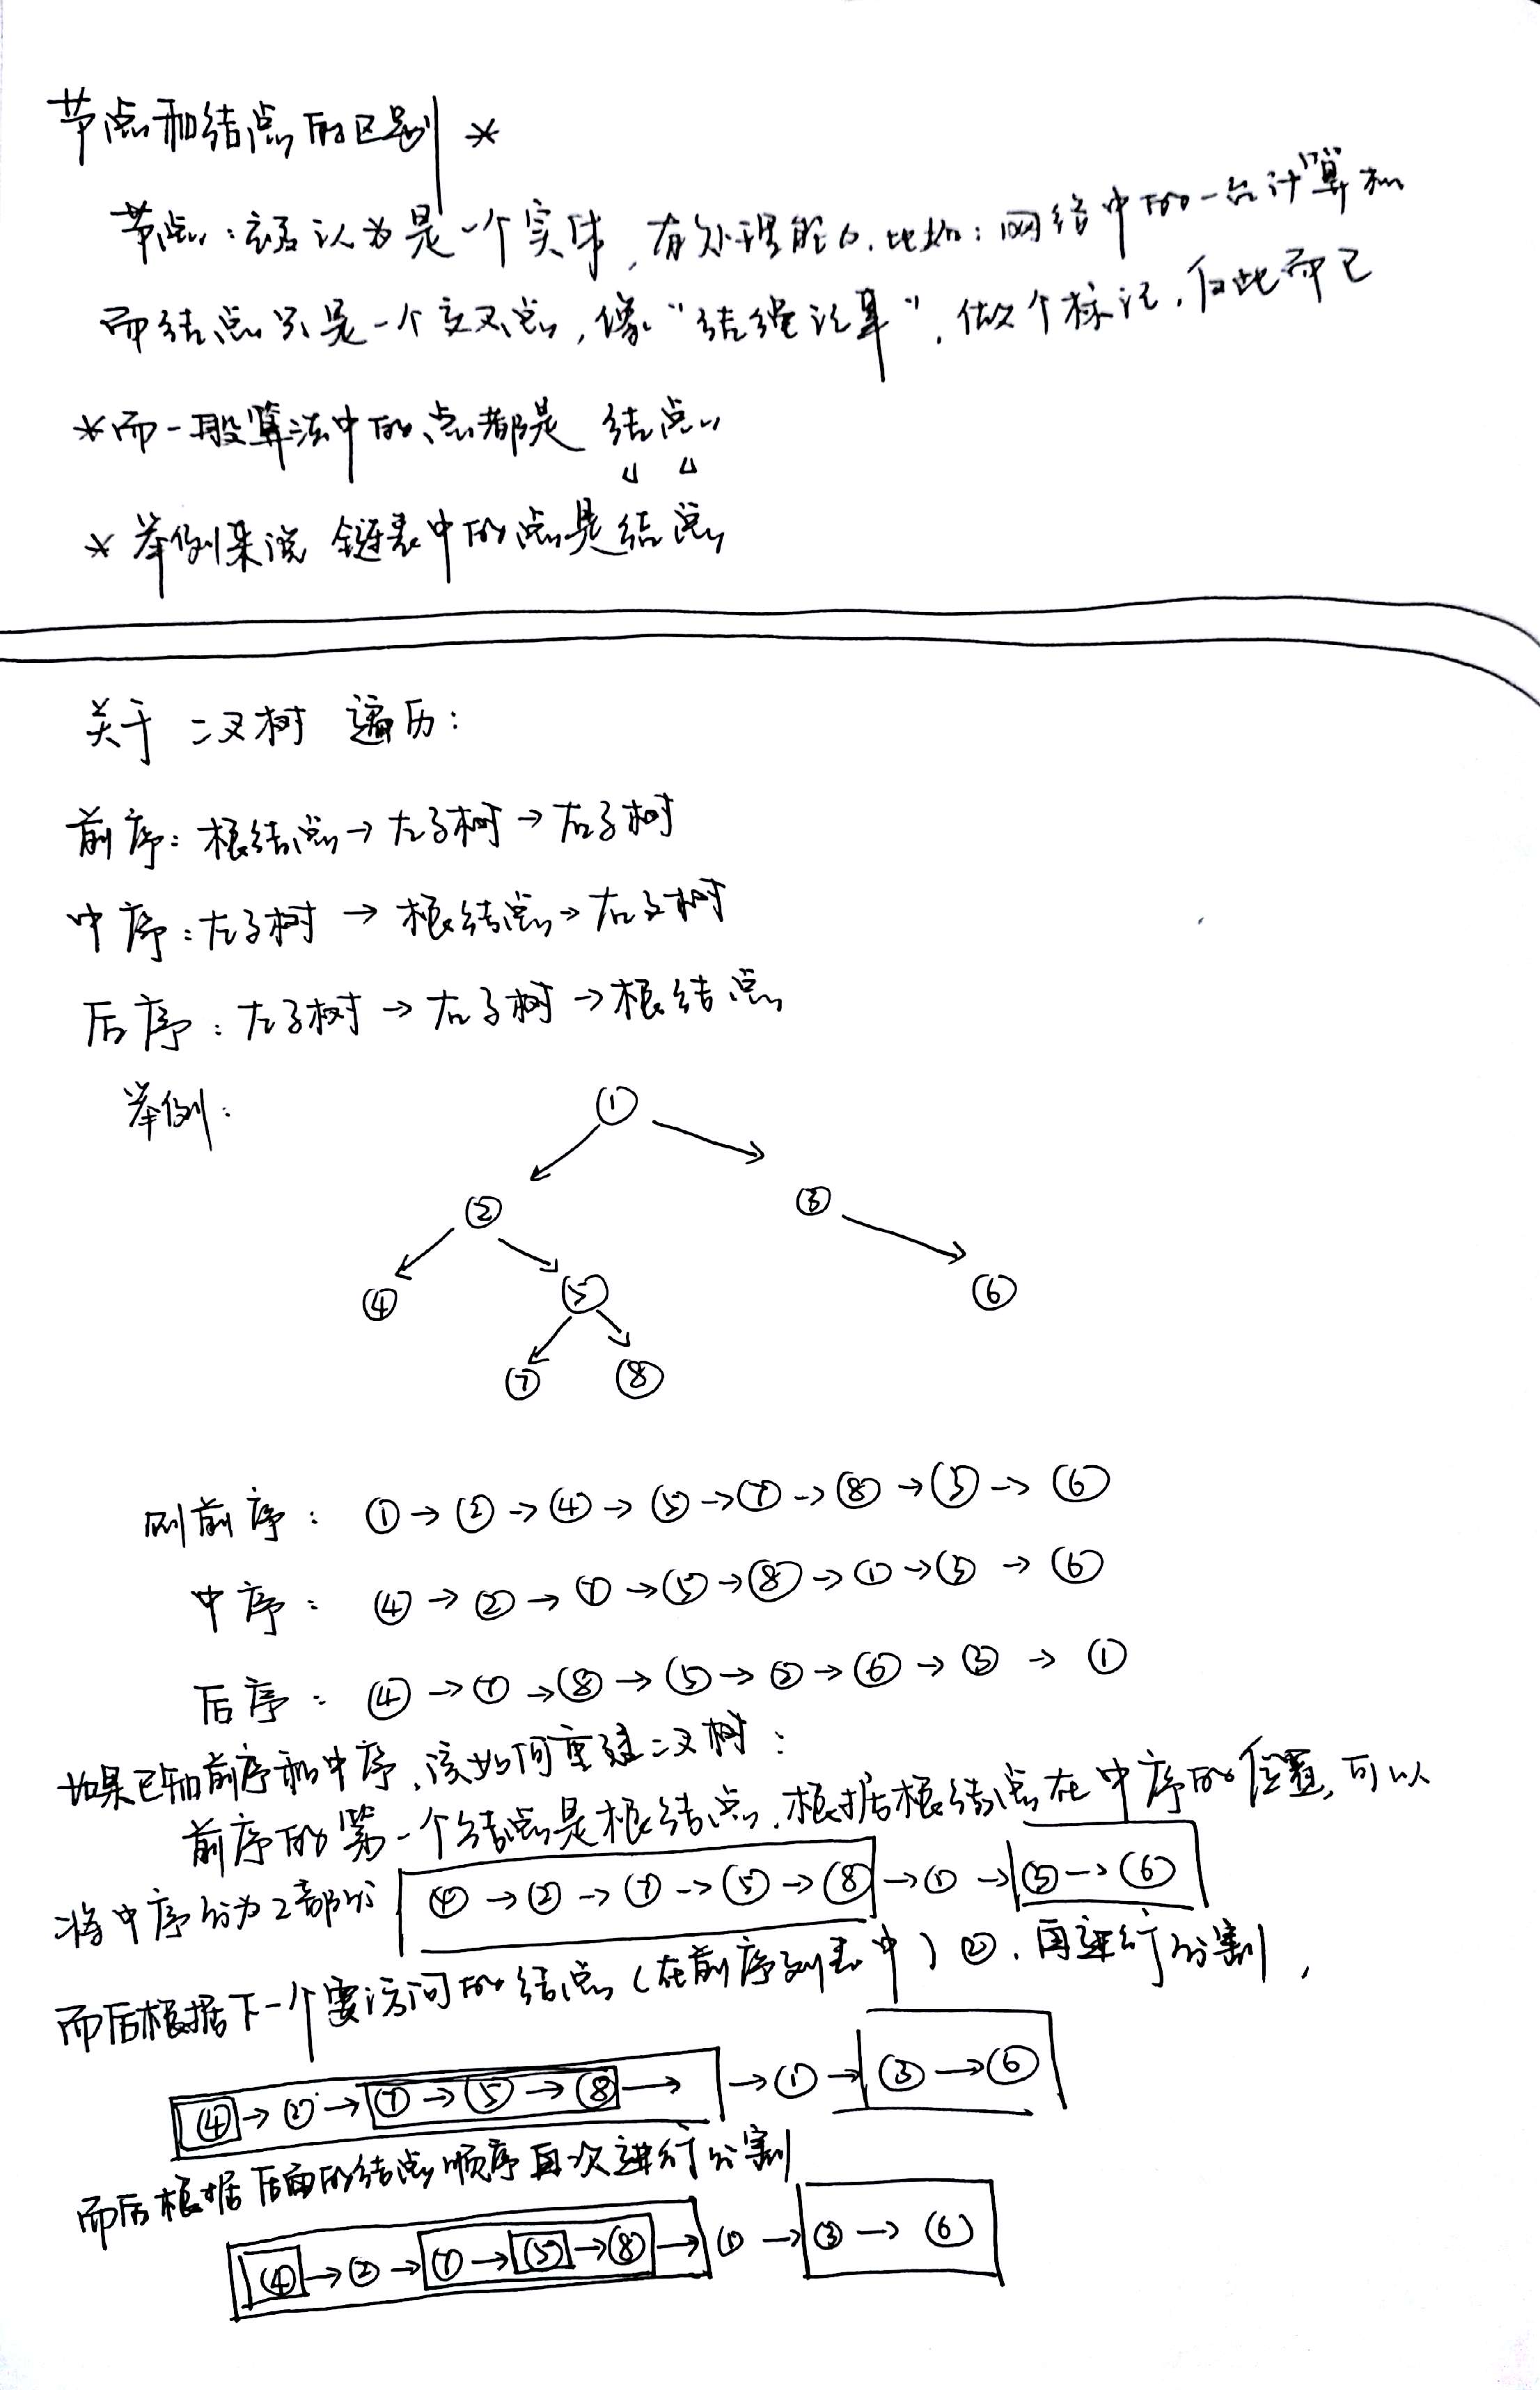 节点和结点的区别 *
节点：被认为是一个实体，有处理能力，比如：网络中的一台计算机
而结点只是一个交叉点，像“结绳记事”，做个标记，仅此而已
*而一般算法中的点都是 结点
*举例来说 链表中的点是结点
关于 二叉树 遍历：
前序：根结点→左子树→右子树
中序：左子树→根结点→右子树
后序：左子树→右子树→根结点
举例：
①
② ③
④ ⑤ ⑥
⑦ ⑧
则前序：①→②→④→⑤→⑦→⑧→③→⑥
中序：④→②→⑦→⑤→⑧→①→③→⑥
后序：④→⑦→⑧→⑤→②→⑥→③→①
如果已知前序和中序，该如何重建二叉树：
前序的第一个结点是根结点，根据根结点在中序的位置，可以
将中序分为2部分 ④→②→⑦→⑤→⑧→①→③→⑥
而后根据下一个要访问的结点（在前序列表中）②，再进行分割，
④→②→⑦→⑤→⑧→→①→③→⑥
而后根据后面的结点顺序再次进行分割
④→②→⑦→⑤→⑧→①→③→⑥